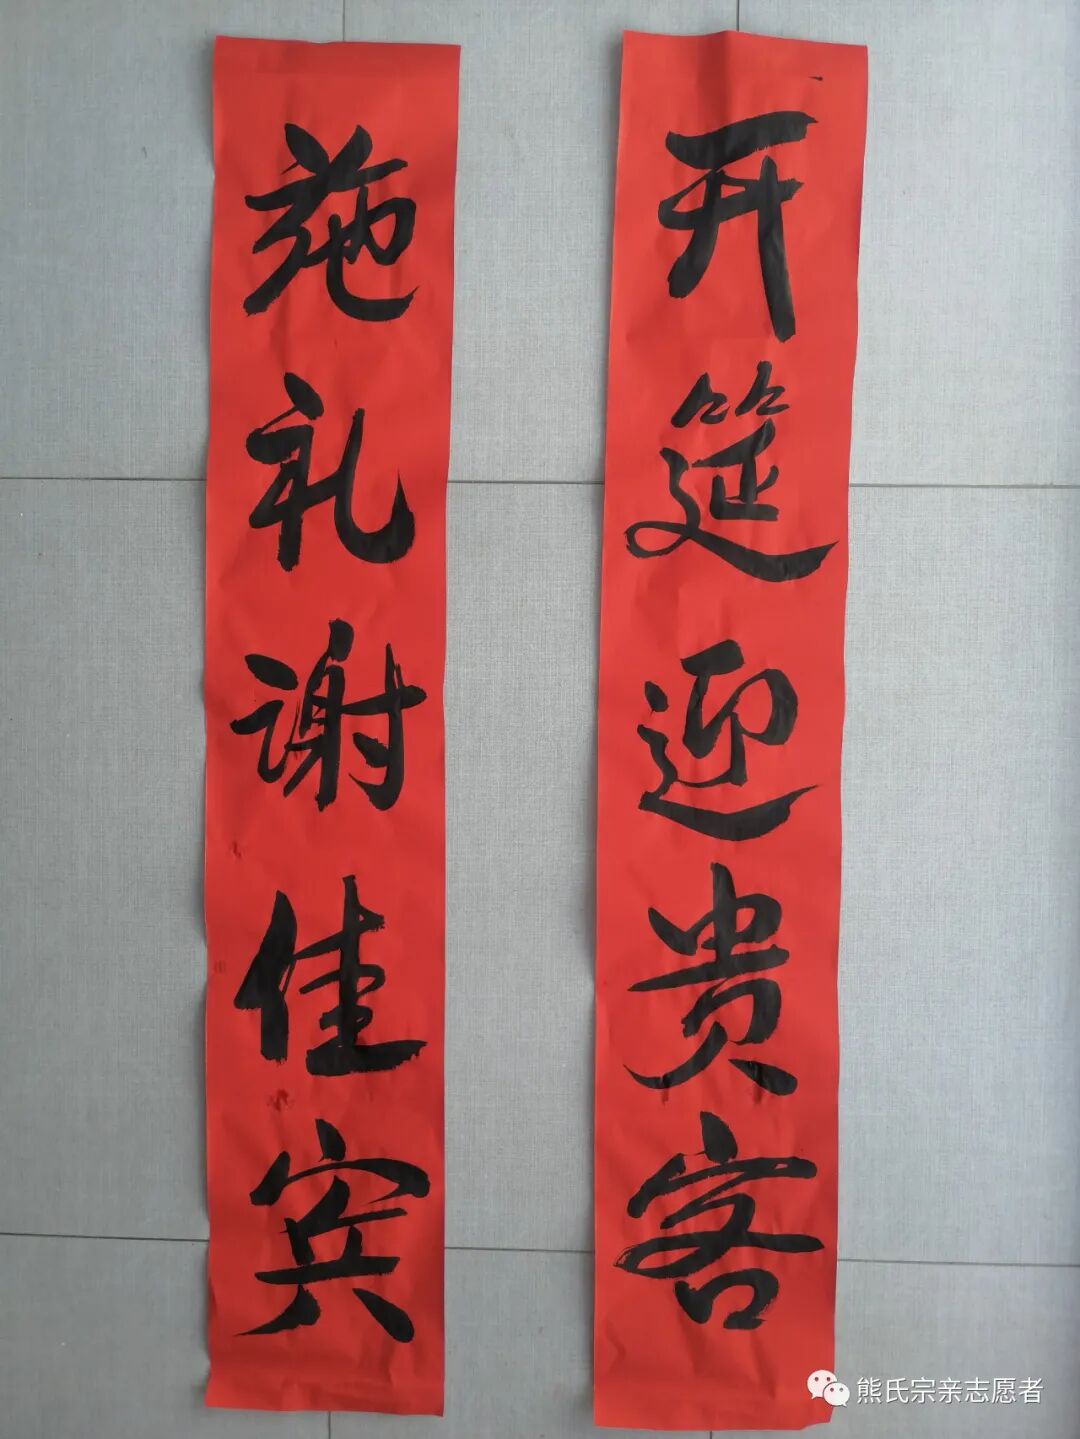 开筵迎贵客
施礼谢佳宾
熊氏宗亲志愿者